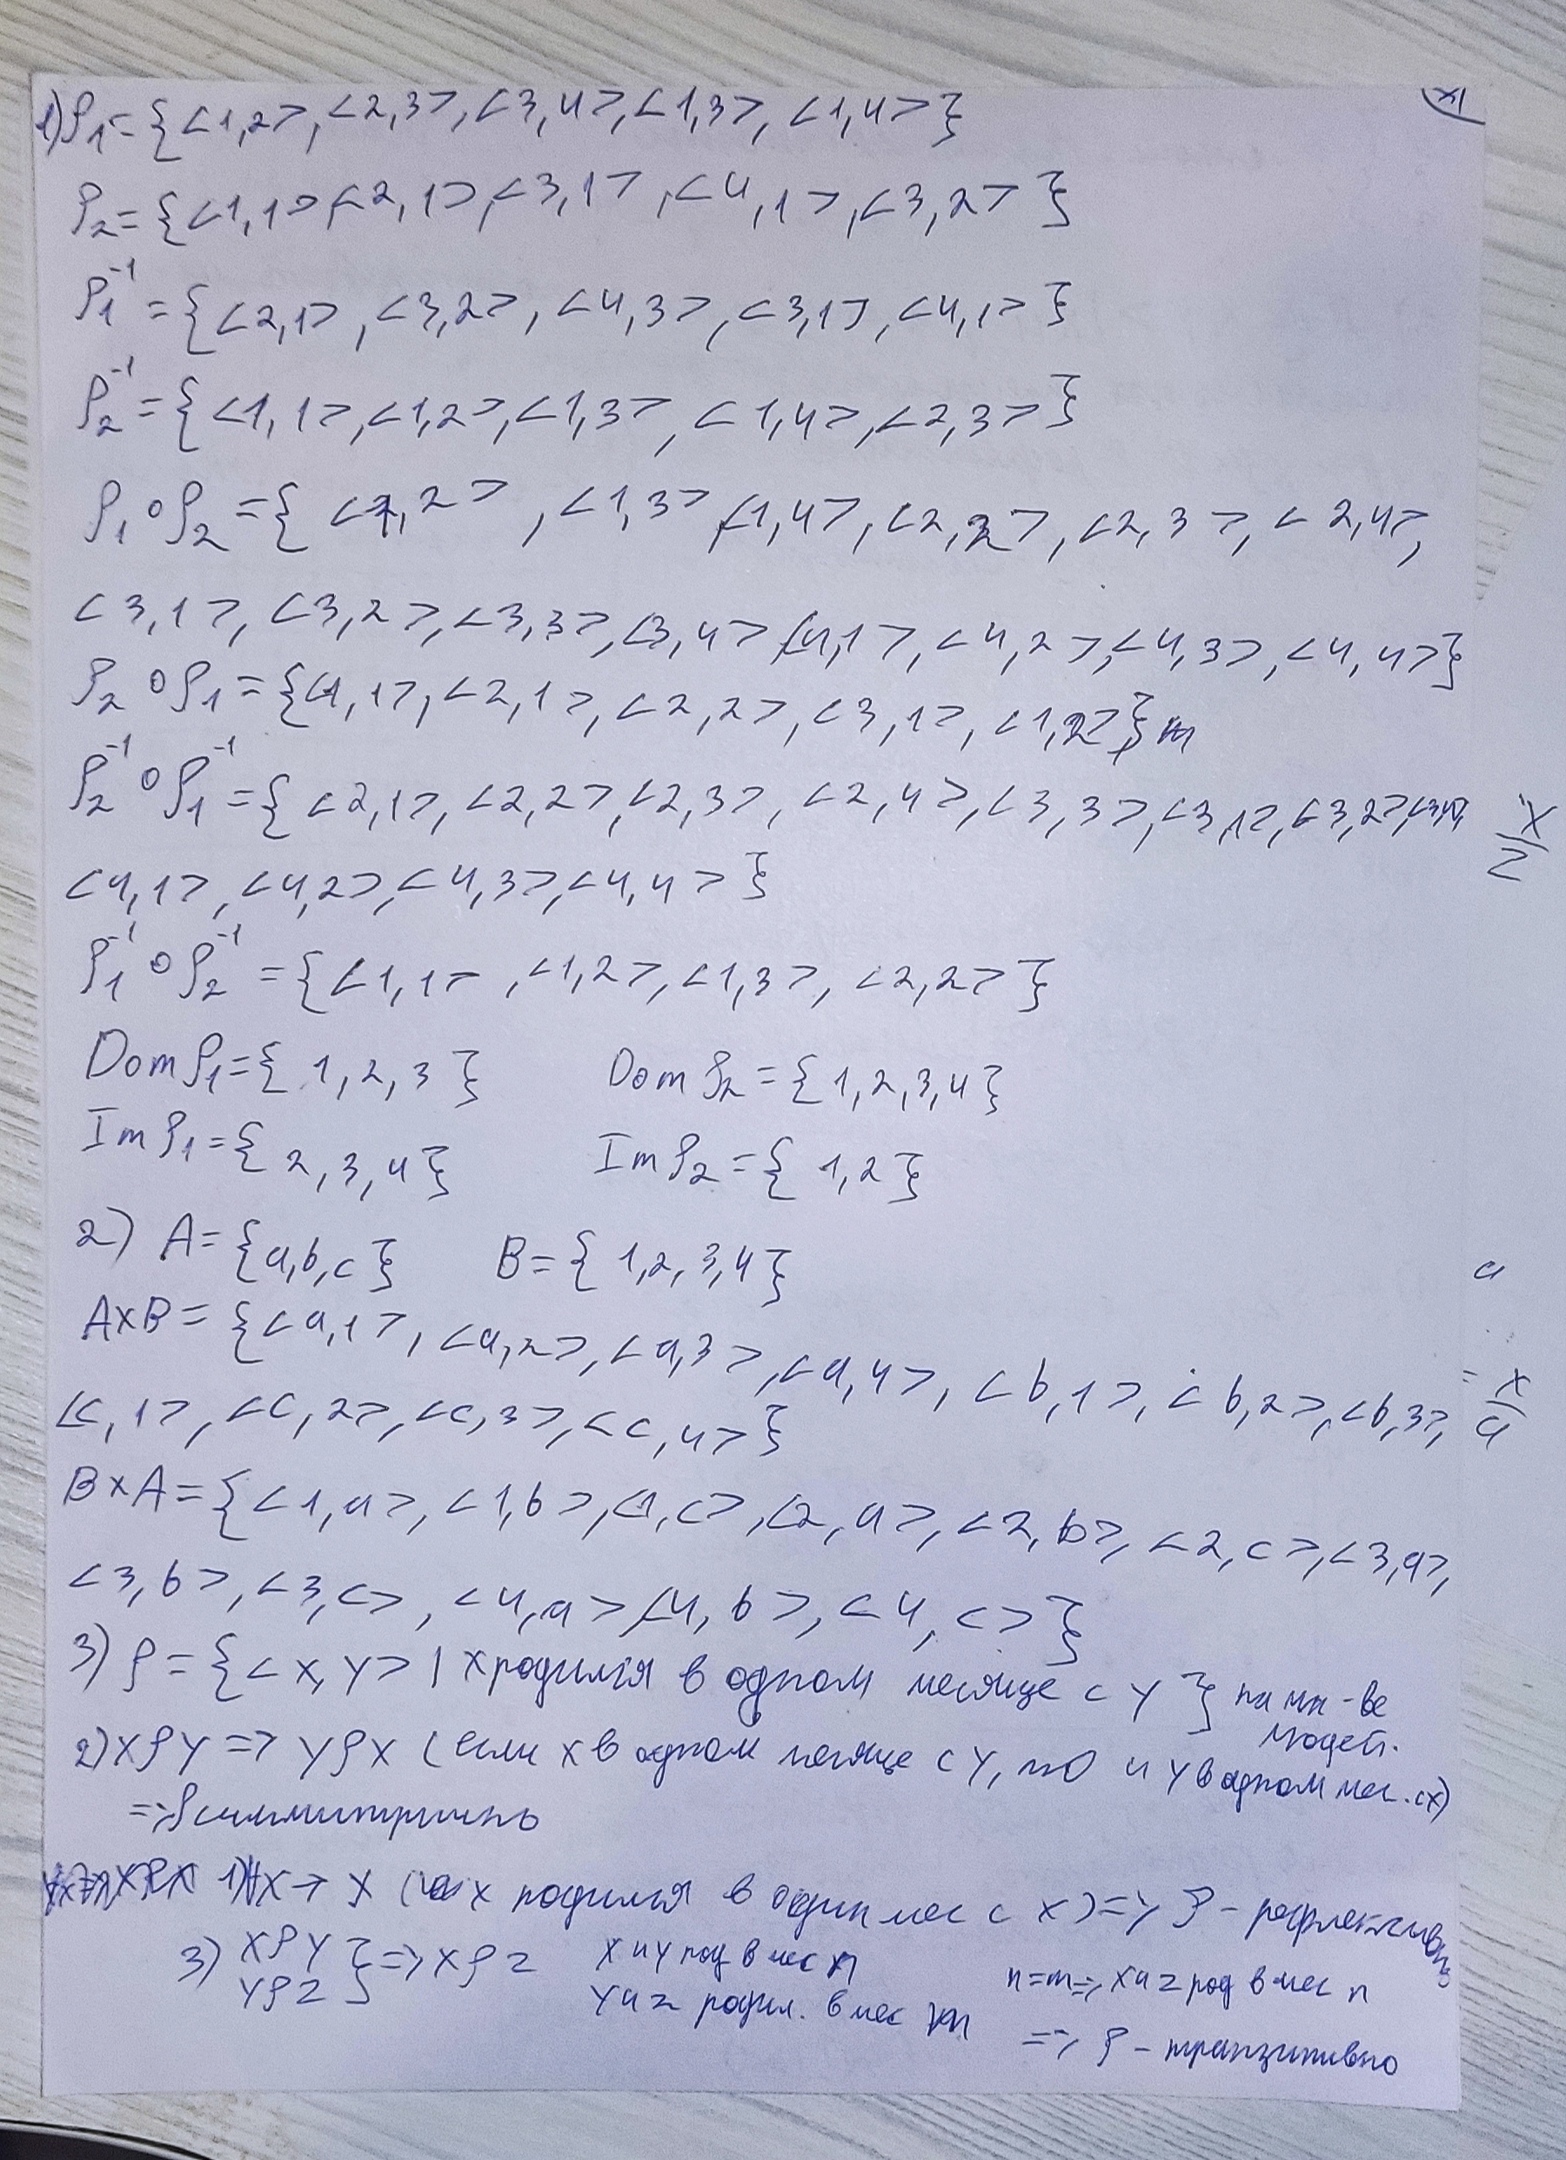 1) ρ₁ = {<1,2>, <2,3>, <3,4>, <1,3>, <1,4>}
ρ₂ = {<1,1>, <2,1>, <3,1>, <4,1>, <3,2>}
ρ₁⁻¹ = {<2,1>, <3,2>, <4,3>, <3,1>, <4,1>}
ρ₂⁻¹ = {<1,1>, <1,2>, <1,3>, <1,4>, <2,3>}
ρ₁ ∘ ρ₂ = { <1,2>, <1,3>, <1,4>, <2,2>, <2,3>, <2,4>,
<3,1>, <3,2>, <3,3>, <3,4>, <4,1>, <4,2>, <4,3>, <4,4>}
ρ₂ ∘ ρ₁ = {<1,1>, <2,1>, <2,2>, <3,1>, <1,2>}
ρ₂⁻¹ ∘ ρ₁⁻¹ = { <2,1>, <2,2>, <2,3>, <2,4>, <3,3>, <3,1>, <3,2>, <3,4>,
<4,1>, <4,2>, <4,3>, <4,4>}
ρ₁⁻¹ ∘ ρ₂⁻¹ = {<1,1>, <1,2>, <1,3>, <2,2>}
Dom ρ₁ = { 1,2,3 } Dom ρ₂ = {1,2,3,4}
Im ρ₁ = { 2,3,4} Im ρ₂ = { 1,2}
2) A = {a,b,c} B = { 1,2,3,4}
A×B = {<a,1>, <a,2>, <a,3>, <a,4>, <b,1>, <b,2>, <b,3>,
<c,1>, <c,2>, <c,3>, <c,4>}
B×A = {<1,a>, <1,b>, <1,c>, <2,a>, <2,b>, <2,c>, <3,a>,
<3,b>, <3,c>, <4,a>, <4,b>, <4,c>}
3) ρ = {<x,y> | x родился в одном месяце с y } на мн-ве
людей.
2) xρy => yρx (если x в одном месяце с y, то и y в одном мес. с x)
=> ρ симметрично
1) ∀x → x ( x родился в один мес с x) => ρ - рефлективно
3) xρy } => xρz x и y род в мес n
yρz y и z родил. в мес m
n=m => x и z род в мес n
=> ρ - транзитивно